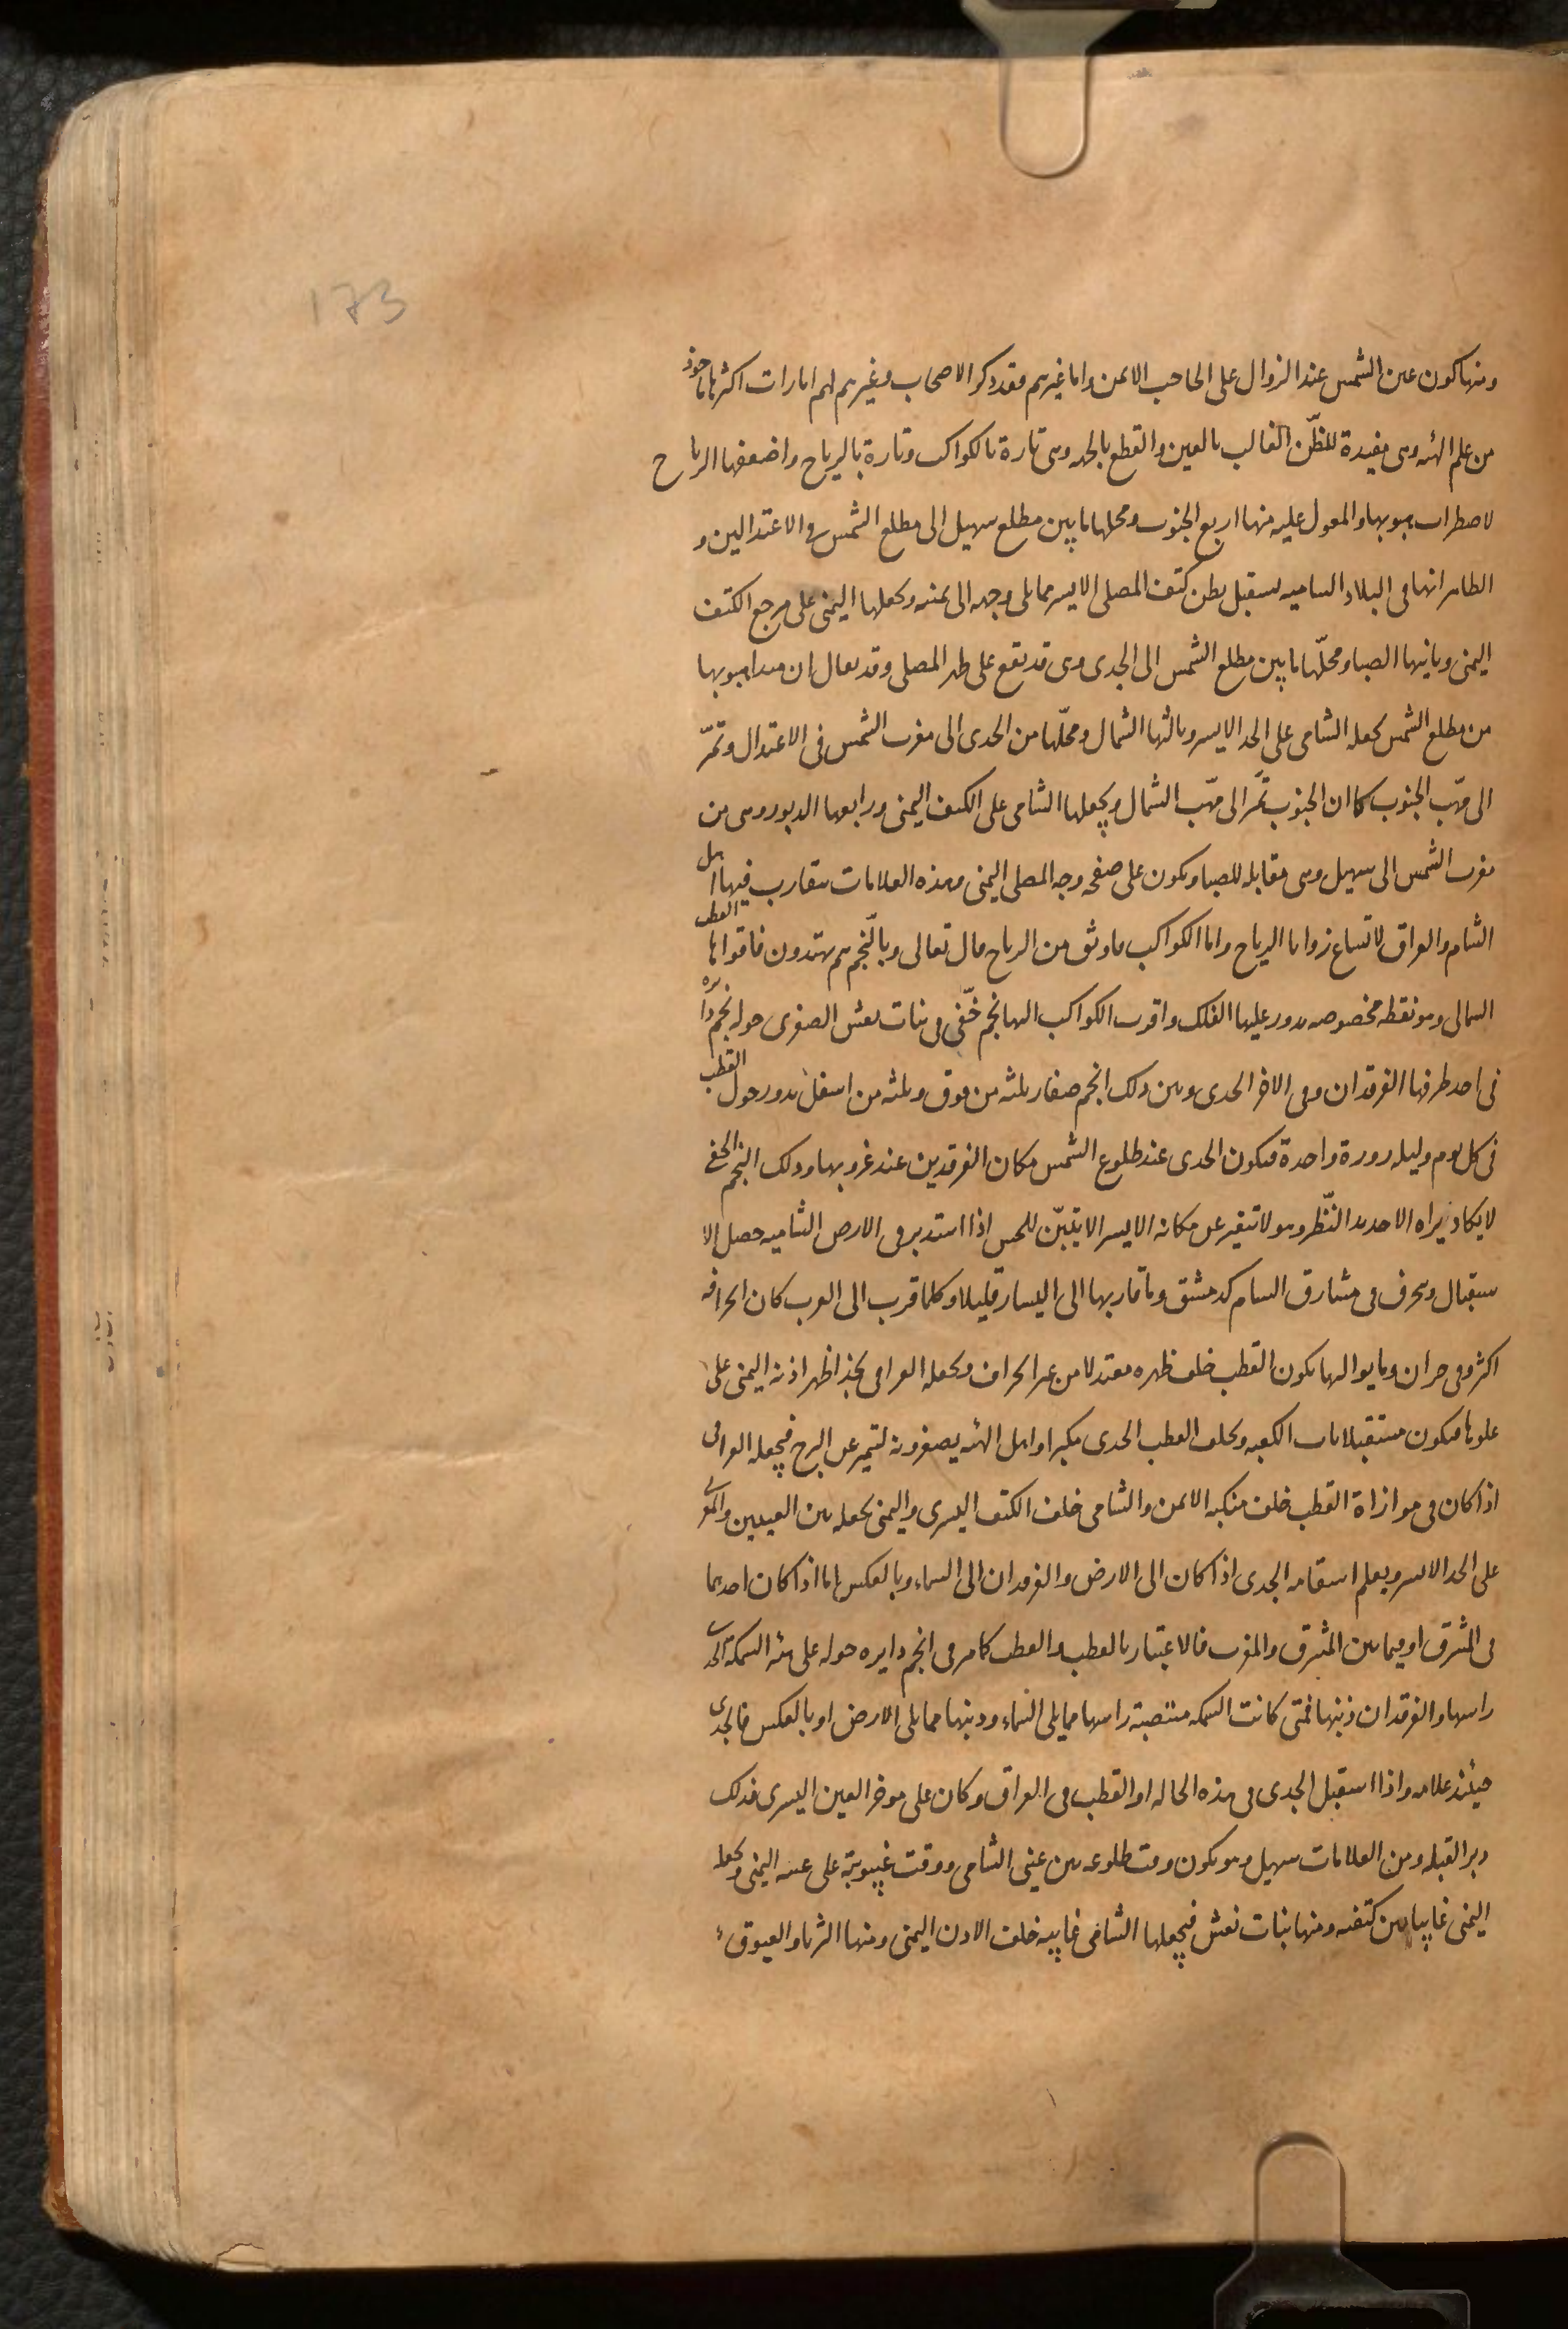 173
ومنها كون عين الشمس عند الزوال على الحاجب الايمن واما غيرهم فقد ذكر الاصحاب وغيرهم لهم امارات اكثرها ماخوذ
من علم الهيئه وهى مفيدة للظّن الغالب بالعين والقطع بالجهه وهى تارة بالكواكب وتارة بالرياح واضعفها الرياح
لاضطراب هبوبها والمعول عليه منها اربع الجنوب ومحلها ما بين مطلع سهيل الى مطلع الشمس فى الاعتدالين و
الظاهر انها فى البلاد الشاميه يستقبل بطن كتف المصلى الايسر مما يلى وجهه الى يمينه ويجعلها اليمنى على مرجع الكتف
اليمنى وثانيها الصبا ومحلّها ما بين مطلع الشمس الى الجدى وهى قد تقع على ظهر المصلى وقد يقال ان مبدا هبوبها
من مطلع الشمس يجعله الشامى على الخد الايسر وثالثها الشمال ومحلّها من الجدى الى مغرب الشمس فى الاعتدال وتمّر
الى مهّب الجنوب كما ان الجنوب تمّر الى مهّب الشمال ويجعلها الشامى على الكتف اليمنى ورابعها الدبور وهى من
مغرب الشمس الى سهيل وهى مقابله للصبا ويكون على صفحه وجه المصلى اليمنى وهذه العلامات يتقارب فيها اهل
الشام والعراق لاتساع زوايا الرياح واما الكواكب فاوثق من الرياح قال تعالى وبالّنجم هم يهتدون فاقواها القطب
الشمالى وهو نقطه مخصوصه يدور عليها الفلك واقرب الكواكب اليها نجم خفّى فى بنات نعش الصغرى حوله نجم دائره
فى احد طرفيها الفرقدان وفى الاخر الجدى وبين ذلك انجم صغار ثلثه من فوق وثلثه من اسفل يدور حول القطب
فى كل يوم وليله دورة واحدة فيكون الجدى عند طلوع الشمس مكان الفرقدين عند غروبها وذلك النجم الخفى
لا يكاد يراه الا حديد النّظر وهو لا تيغير عن مكانه الا يسير الا يتبيّن للحس اذا استدبر فى الارض الشاميه حصل الا
ستقبال وينحرف فى مشارق الشام كدمشق وما قاربها الى اليسار قليلا وكلما قرب الى الغرب كان انحرافه
اكثر وفى حران وما يواليها يكون القطب خلف ظهره معتدلا من غير انحراف ويجعله العراقى بحذا ظهر اذنه اليمنى على
علوها فيكون مستقبلا باب الكعبه ويخلف القطب الجدى مكبرا واهل الهيئه يصغرونه لتميز عن البرج فيجعله العراقى
اذا كان فى موازاة القطب خلف منكبه الايمن والشامى خلف الكتف اليسرى واليمنى يجعله بين العينين والمغربى
على الخد الايسر ويعلم استقامه الجدى اذا كان الى الارض والفرقدان الى السماء وبالعكس اما اذا كان احدهما
فى المشرق او فيما بين المشرق والمغرب فالاعتبار بالقطب والقطب كما مر فى انجم دايره حوله على هيئه السمكه الجدى
راسها والفرقدان ذنبها فمتى كانت السمكه منتصبة راسها مما يلى السماء وذنبها مما يلى الارض او بالعكس فالجدى
حينئذ علامه واذا استقبل الجدى فى هذه الحاله او القطب فى العراق وكان على موخر العين اليسرى فذلك
دبر القبله ومن العلامات سهيل وهو يكون وقت طلوعه بين عينى الشامى ووقت غيبوبته على عينه اليمنى ويجعله
اليمنى غايبا بين كتفيه ومنها بنات نعش فيجعلها الشامى غايبه خلف الاذن اليمنى ومنها الثريا والعيوق